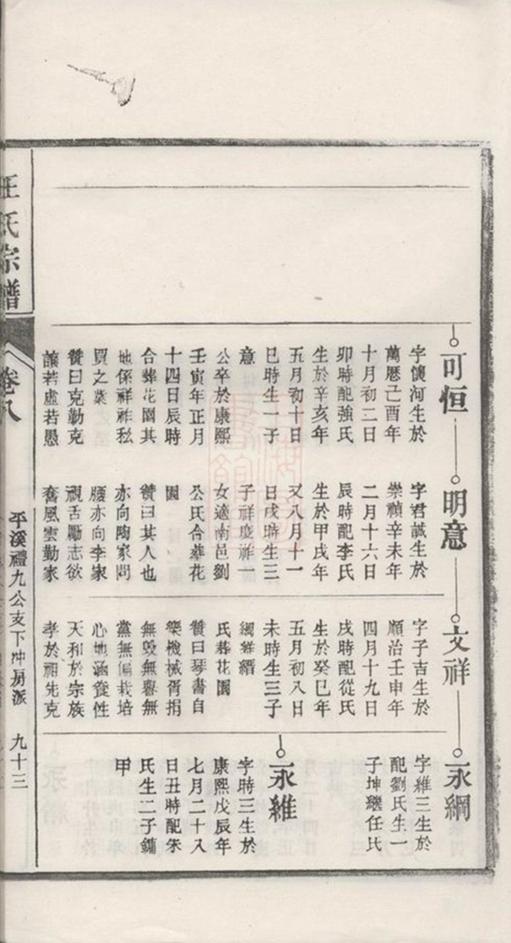 可恒
字懷河生於
萬曆己酉年
十月初二日
卯時配強氏
生於辛亥年
五月初十日
巳時生一子
意
公卒於康熙
壬寅年正月
十四日辰時
合葬花園其
地係祥祚私
買之業
贊曰克勤克
讓若虛若愚
明意
字君誠生於
崇禎辛未年
二月十六日
辰時配李氏
生於甲戌年
又八月十一
日戌時生三
子祥慶祚一
女適南邑劉
公氏合葬花
園
贊曰其人也
亦向陶家問
腰亦向李家
視舌勵志欲
奮風雲勤家
文祥
字子吉生於
順治壬申年
四月十九日
戌時配從氏
生於癸巳年
五月初八日
未時生三子
綱維縉
氏葬花園
贊曰琴書自
樂機械胥捐
無毀無譽無
黨無偏栽培
心地涵養性
天和於宗族
孝於祖先克
永綱
字維三生於
配劉氏生一
子坤躍任氏
永維
字時三生於
康熙戊辰年
七月二十八
日丑時配朱
氏生二子鏞
甲
王氏宗譜
卷八
平溪禮九公支下冲房派
九十三